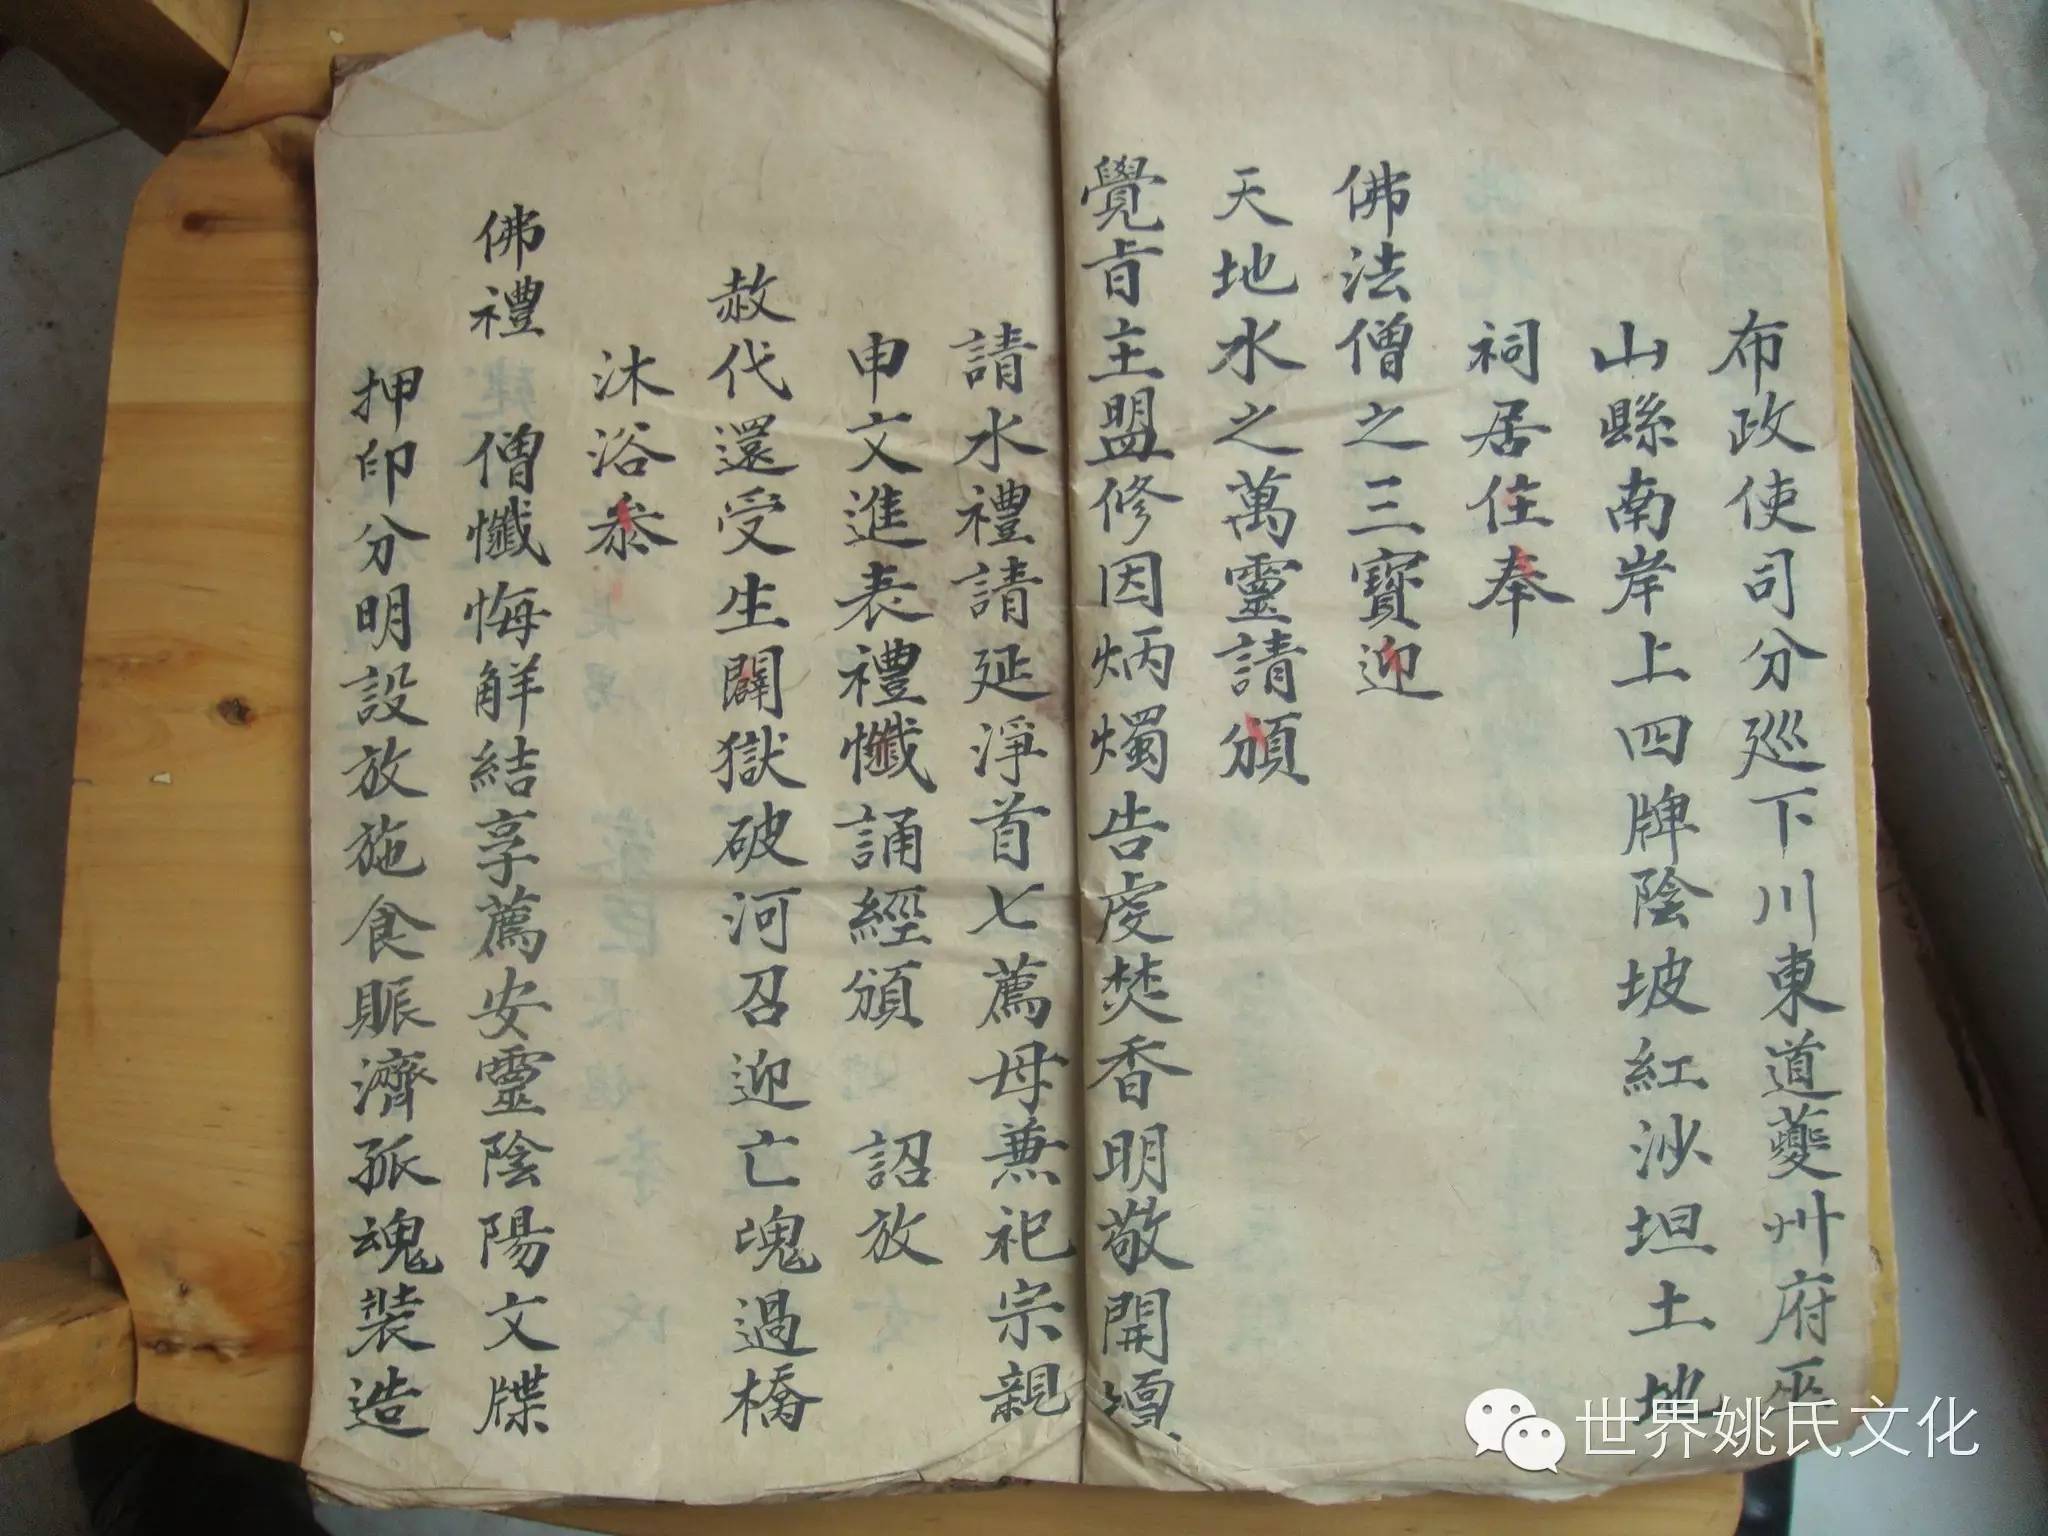 布政使司分廵下川東道夔州府巫
山縣南岸上四牌陰坡紅沙坦土地
祠居住奉
佛法僧之三寳迎
天地水之萬靈請頒
覺㫖主盟修因炳燭告虔焚香明敬開壇
請水禮請延淨首七薦母兼祀宗親
申文進表禮懺誦經頒 詔放
赦代還受生闢獄破河召迎亡魂過橋
沐浴叅
佛禮 僧懺悔解結享薦安靈陰陽文牒
押印分明設放施食賑濟孤魂裝造
世界姚氏文化